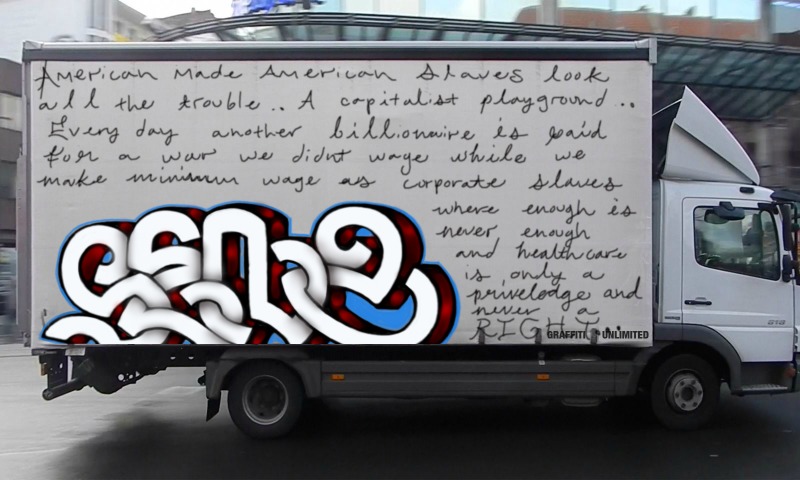 American Made American Slaves look
all the trouble.. A capitalist playground..
Every day another billionaire is paid
for a war we didnt wage while we
make minimum wage as corporate slaves
where enough is
never enough
and healthcare
is only a
privelodge and
never a
RIGHT..
GRAFFITI UNLIMITED